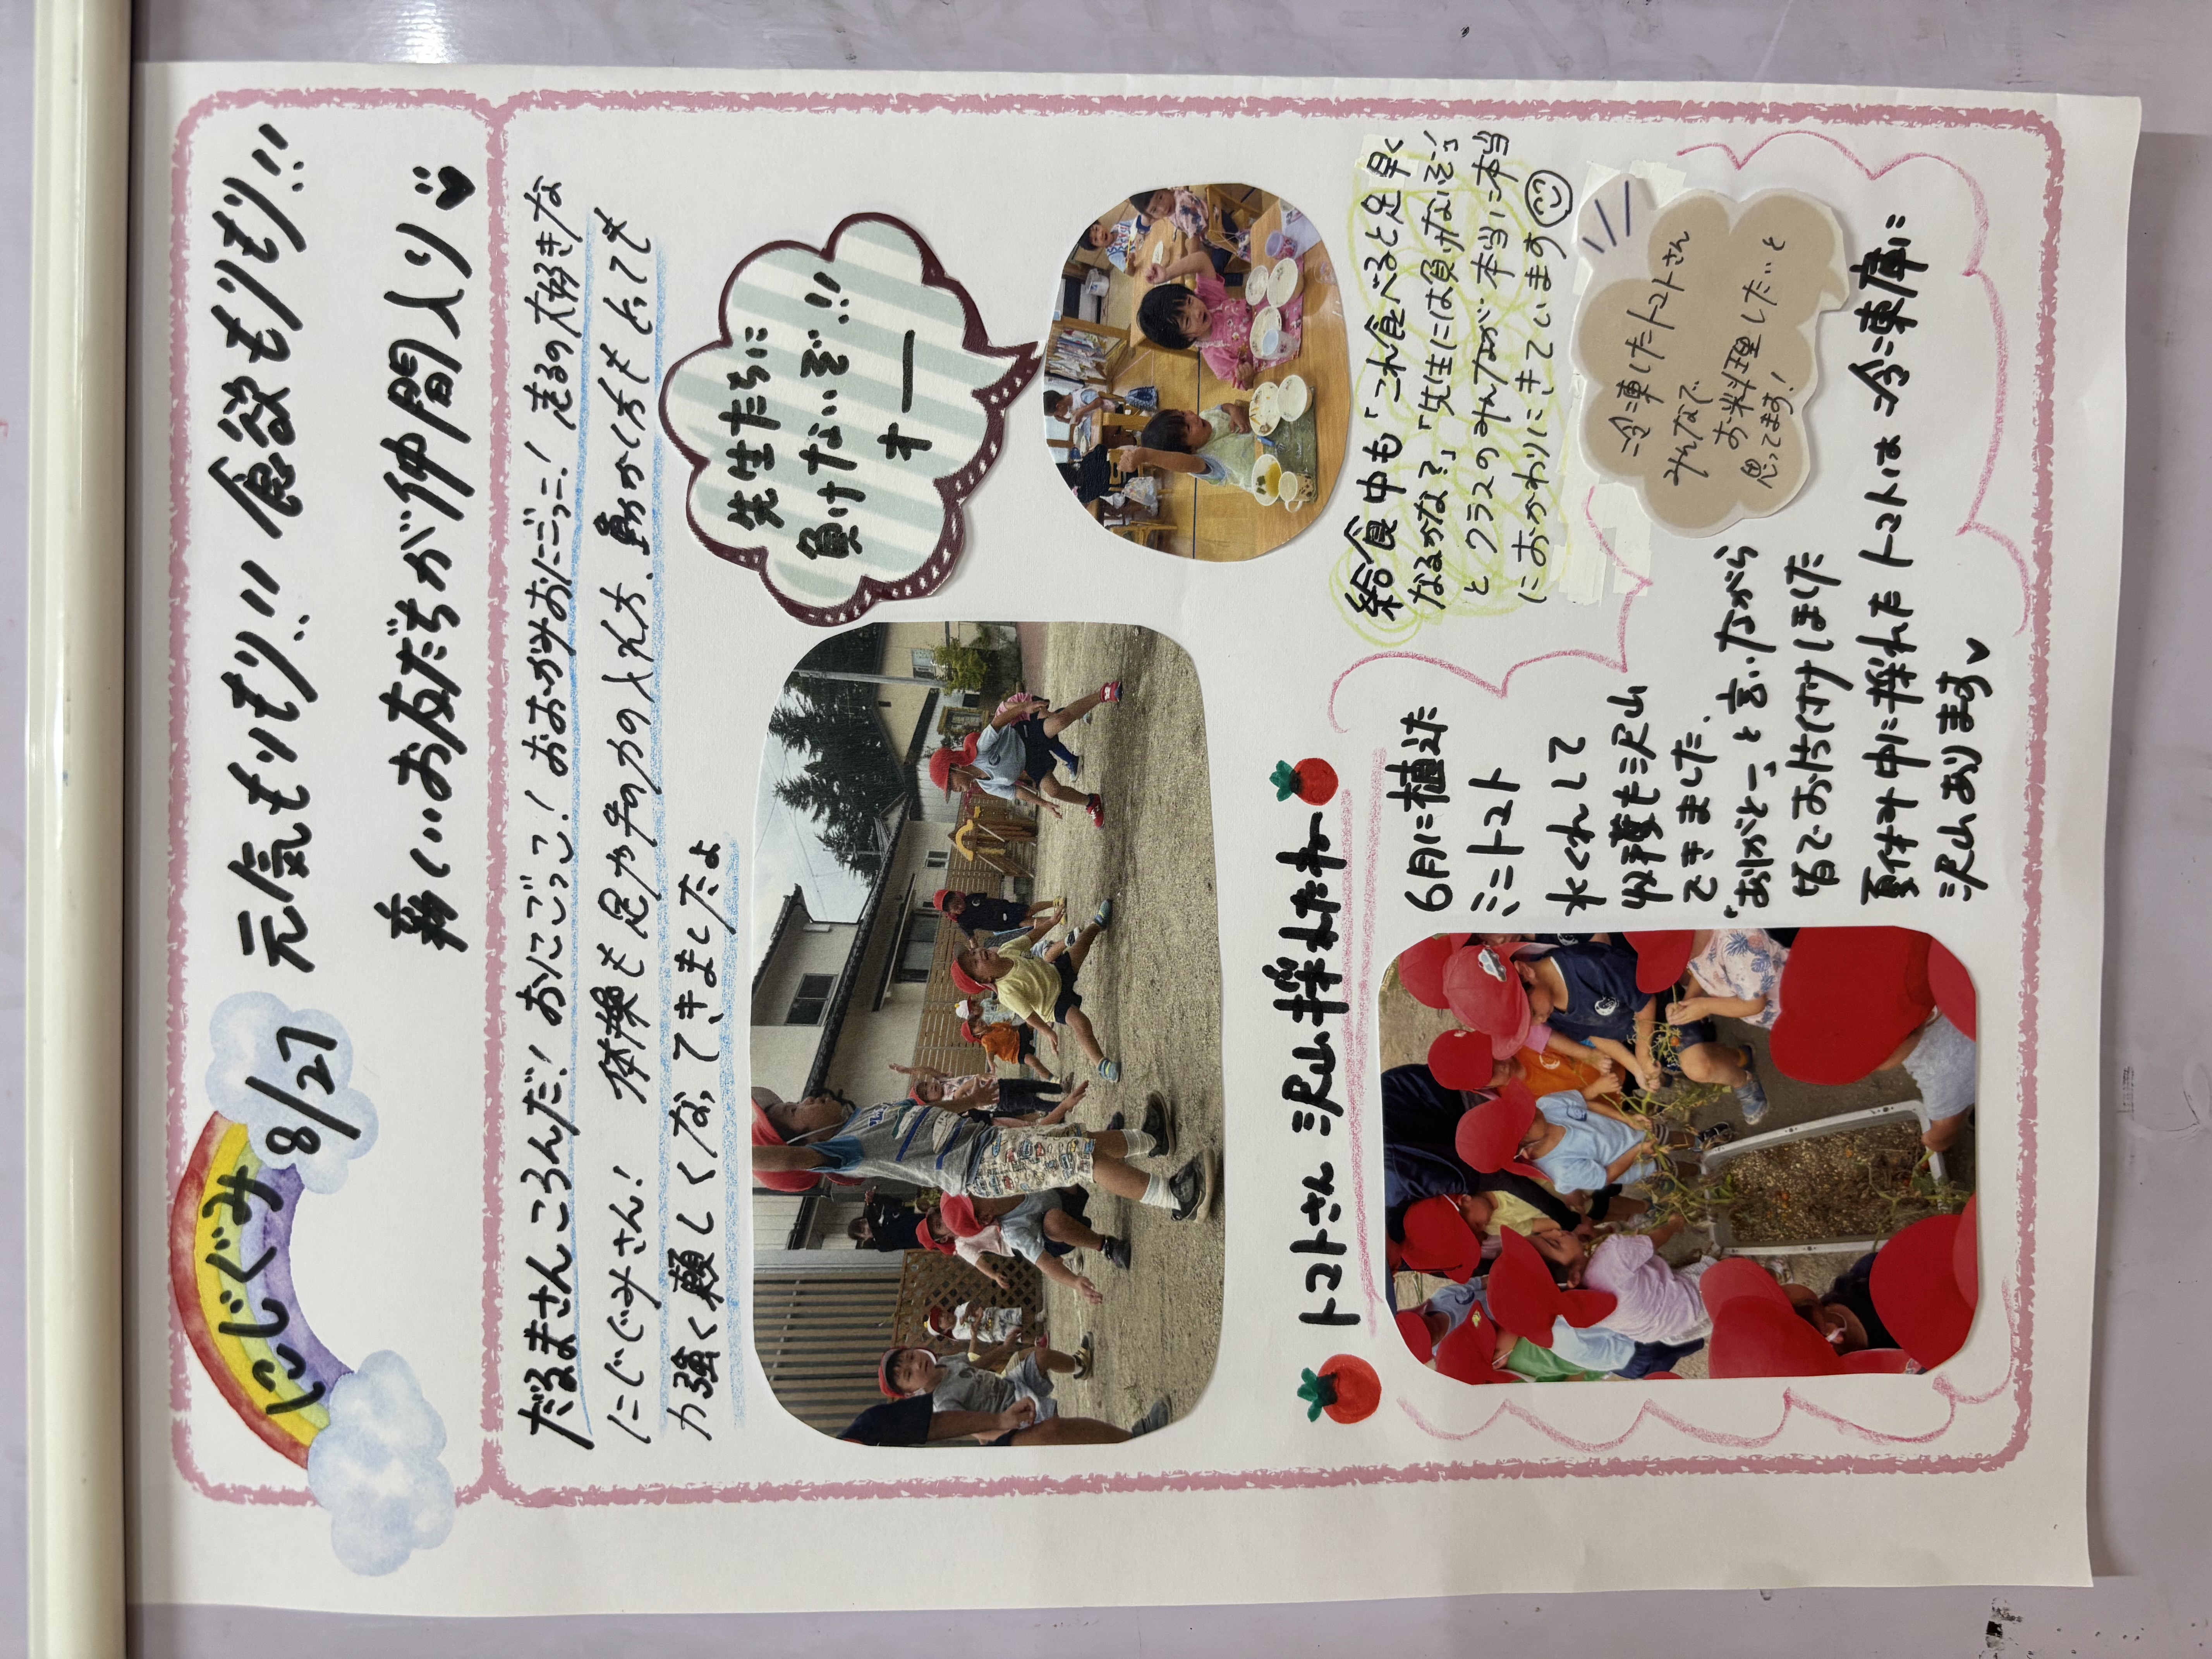 にじぐみ 8/27
元気もりもり!! 食欲もりもり!!
新しいお友だちが仲間入り
だるまさんころんだ! おにごっこ! おおかみおにごっこ! 走るの大好きな
にじぐみさん! 体操も足や手の力の入れ方、動かし方もとっても
力強く頼もしくなってきましたよ
先生たちに
負けないぞ!!
オー
給食中も「これ食べると足早く
なるかな?」「先生には負けないぞー!」
とクラスのみんなが本当に本当
におかわりにきています
トマトさん 沢山採れたねー
6月に植えた
ミニトマト
水くれして
収穫も沢山
できました。
"ありがとー"と言いながら
皆でお片付けしました
夏休み中に採れたトマトは冷凍庫に
沢山あります
冷凍したトマトさん
みんなで
お料理したいと
思ってます!